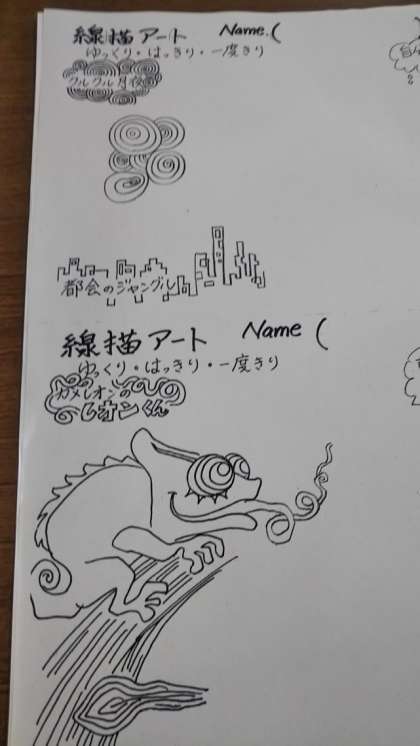 線描アート Name.(
ゆっくり・はっきり・一度きり
クルクル月夜
都会のジャングル
線描アート Name (
ゆっくり・はっきり・一度きり
カメレオンの
レオンくん